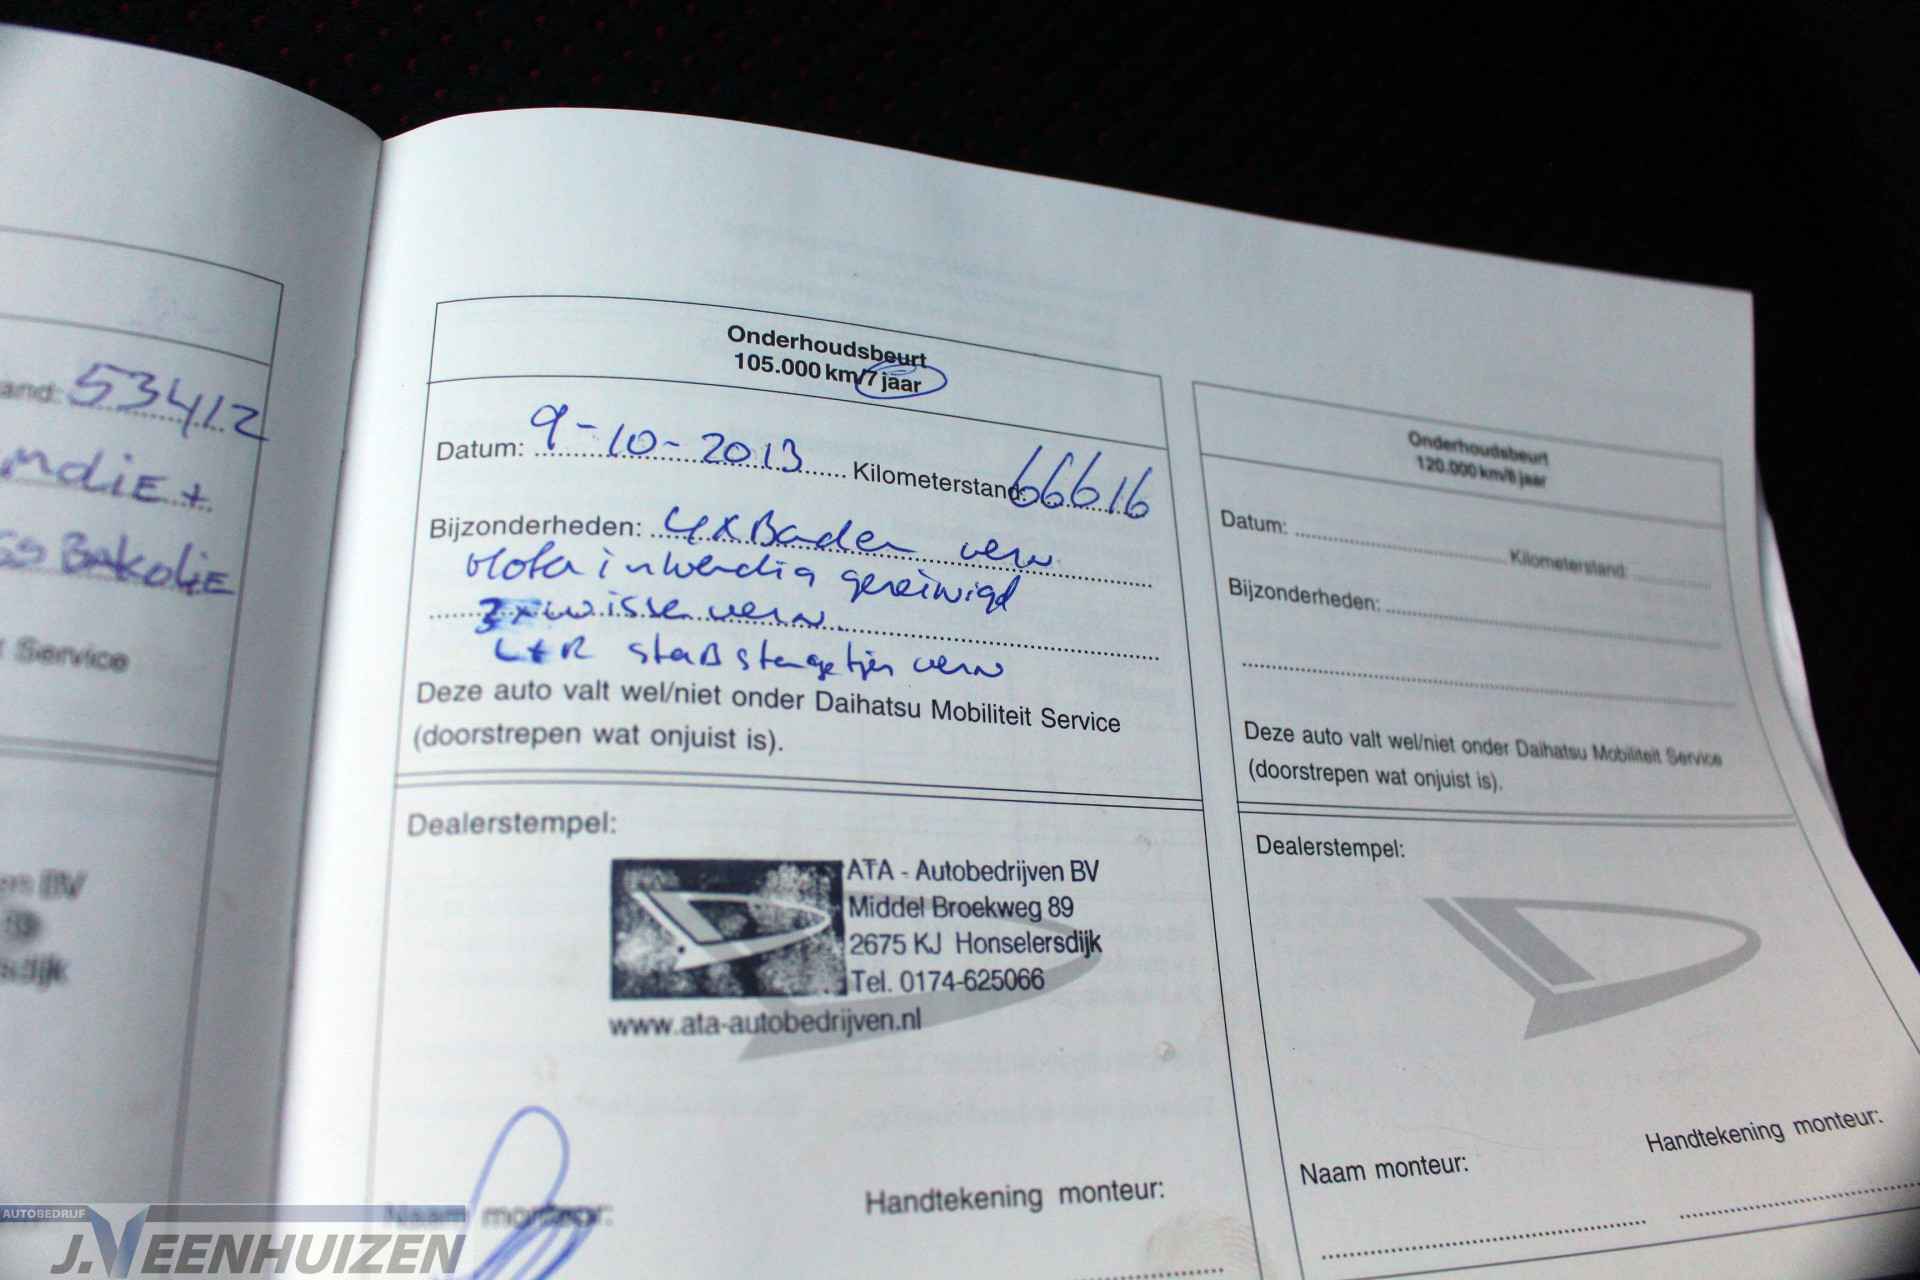 and: 53412
ndiE +
Bakolie
Service
en BV
89
sdijk
Onderhoudsbeurt
105.000 km/7 jaar
Datum: 9-10-2013 Kilometerstand: 66616
Bijzonderheden: 4x Banden verv
Motor inwendig gereinigd
3x wissers verv.
L+R stab stangetjes verv
Deze auto valt wel/niet onder Daihatsu Mobiliteit Service
(doorstrepen wat onjuist is).
Dealerstempel:
ATA - Autobedrijven BV
Middel Broekweg 89
2675 KJ Honselersdijk
Tel. 0174-625066
www.ata-autobedrijven.nl
Naam monteur:
Handtekening monteur:
Onderhoudsbeurt
120.000 km/8 jaar
Datum: Kilometerstand:
Bijzonderheden:
Deze auto valt wel/niet onder Daihatsu Mobiliteit Service
(doorstrepen wat onjuist is).
Dealerstempel:
Naam monteur:
Handtekening monteur:
AUTOBEDRIJF
J.VEENHUIZEN